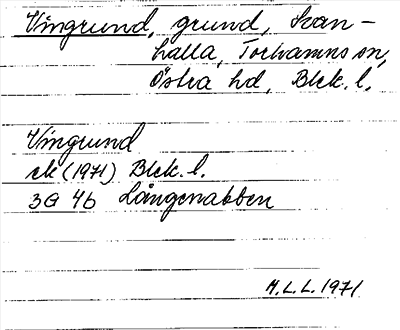 Vingrund, grund, Svan-
halla, Torhamns sn,
Östra hd, Blek. l.
Vingrund
ek (1971) Blek. l.
3G 4b Långenabben
M.L.L. 1971